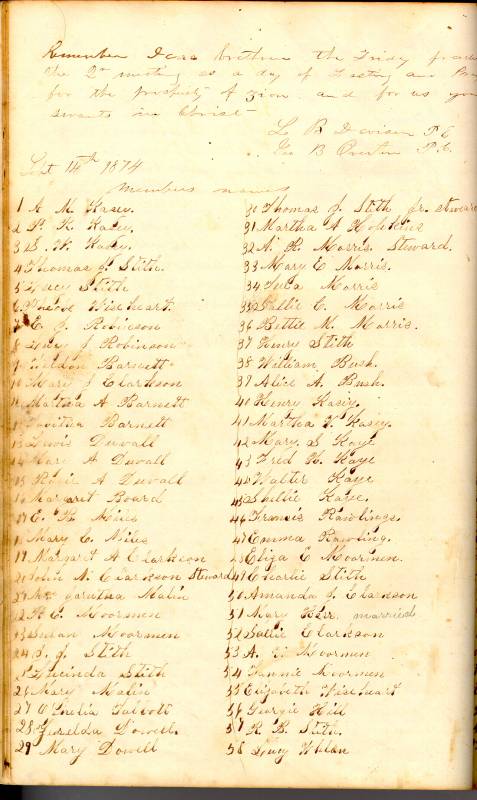 Remember Dear Brethren the Friday
the 2d meeting as a day of Fasting and
for the prosperity of Zion and for us your
servants in Christ
L B Davison P. C.
Geo B Overton P. C.
Sept 14th 1874
Members names
1 A. M. Kasey.
2 P. K. Kasey.
3 S. W. Kasey.
4 Thomas J. Stith.
5 Stith
6 Phebe Wiseheart.
7 E. J. Robinson
8 J Robinson
9 Weldon Barnett
10 Mary J Clarkson
11 Martha A Barnett
12 Tabitha Barnett
13 Lewis Duvall
14 Mary A Duvall
15 A Duvall
16 Margaret Board
17 E. R. Miles
18 Mary C. Miles
19 Margaret A Clarkson
20 John N. Clarkson Steward
21 Malin
22 A C. Moormen
23 Susan Moormen
24 S. J. Stith
25 Lucinda Stith
26 Mary Malin
27 Talbott
28 Dowell.
29 Mary Dowell
30 Thomas J. Stith Jr. Steward
31 Martha A Hopkins
32 A. R. Morris. Steward.
33 Mary E Morris.
34 Morris
35 Sallie C. Morris
36 Bettie M. Morris.
37 Henry Stith
38 William Bush.
39 Alice A. Bush.
40 Henry Kasey.
41 Martha F. Kasey.
42 Mary S Kaye
43 Fred H. Kaye
44 Walter Kaye
45 Kaye.
46 Francis Rawlings.
47 Emma Rawling.
48 Eliza E Moormen.
49 Charlie Stith
50 Amanda J. Clarkson
51 Mary married
52 Sallie Clarkson
53 A. Moormen
54 Fannie Moormen
55 Elizabeth Wiseheart
56 Georgie Hill
57 R. B. Stith.
58 Lucy Whlan